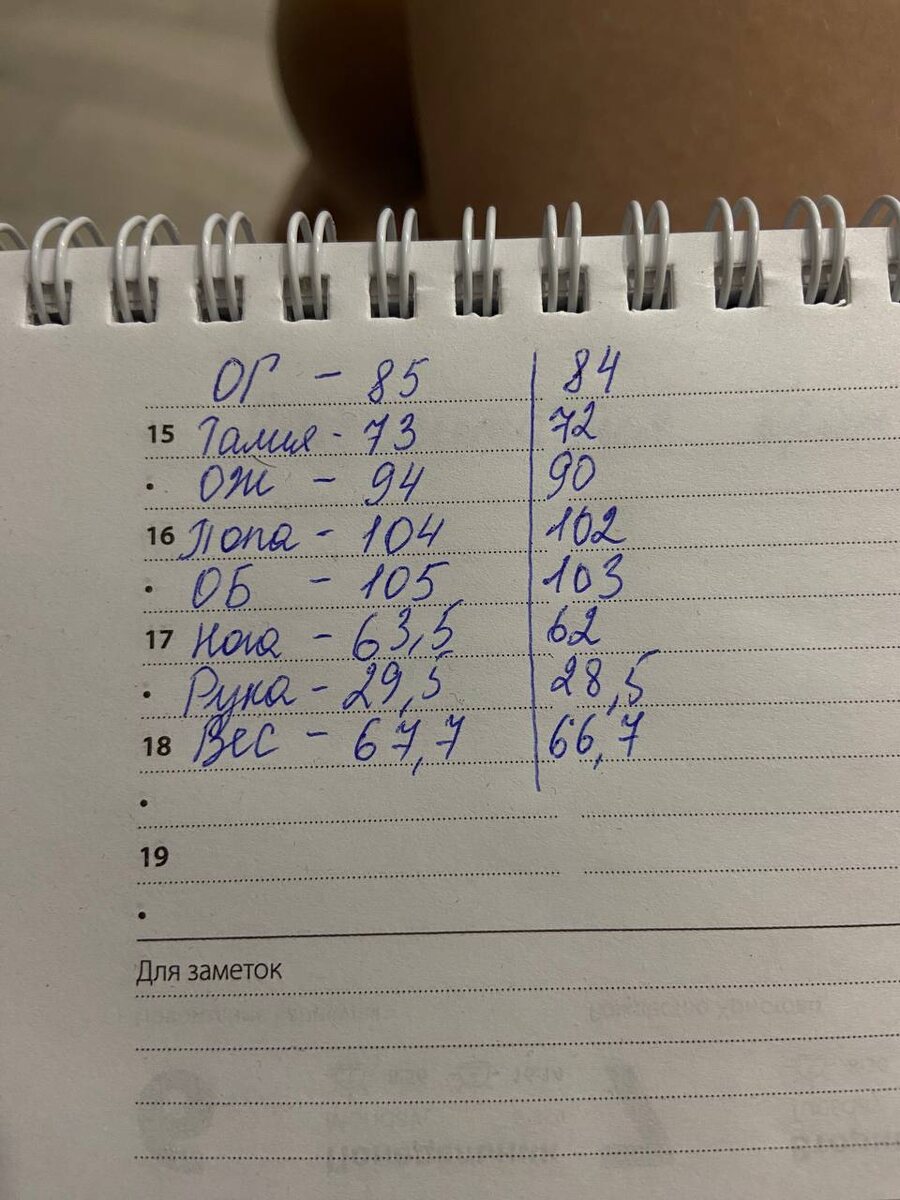 ОГ - 85 84
15 Талия - 73 72
• ОЖ - 94 90
16 Попа - 104 102
• ОБ - 105 103
17 Нога - 63,5 62
• Рука - 29,5 28,5
18 Вес - 67,7 66,7
•
19
•
Для заметок